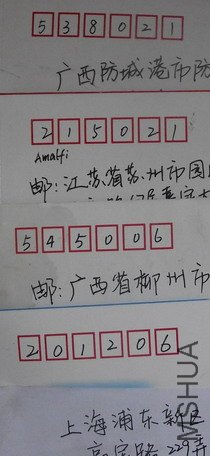 538021
广西防城港市防
215021
Amalfi
邮:江苏省苏州市园
545006
邮:广西省柳州市
201206
上海浦东新区
高宝路229弄
MSHUA